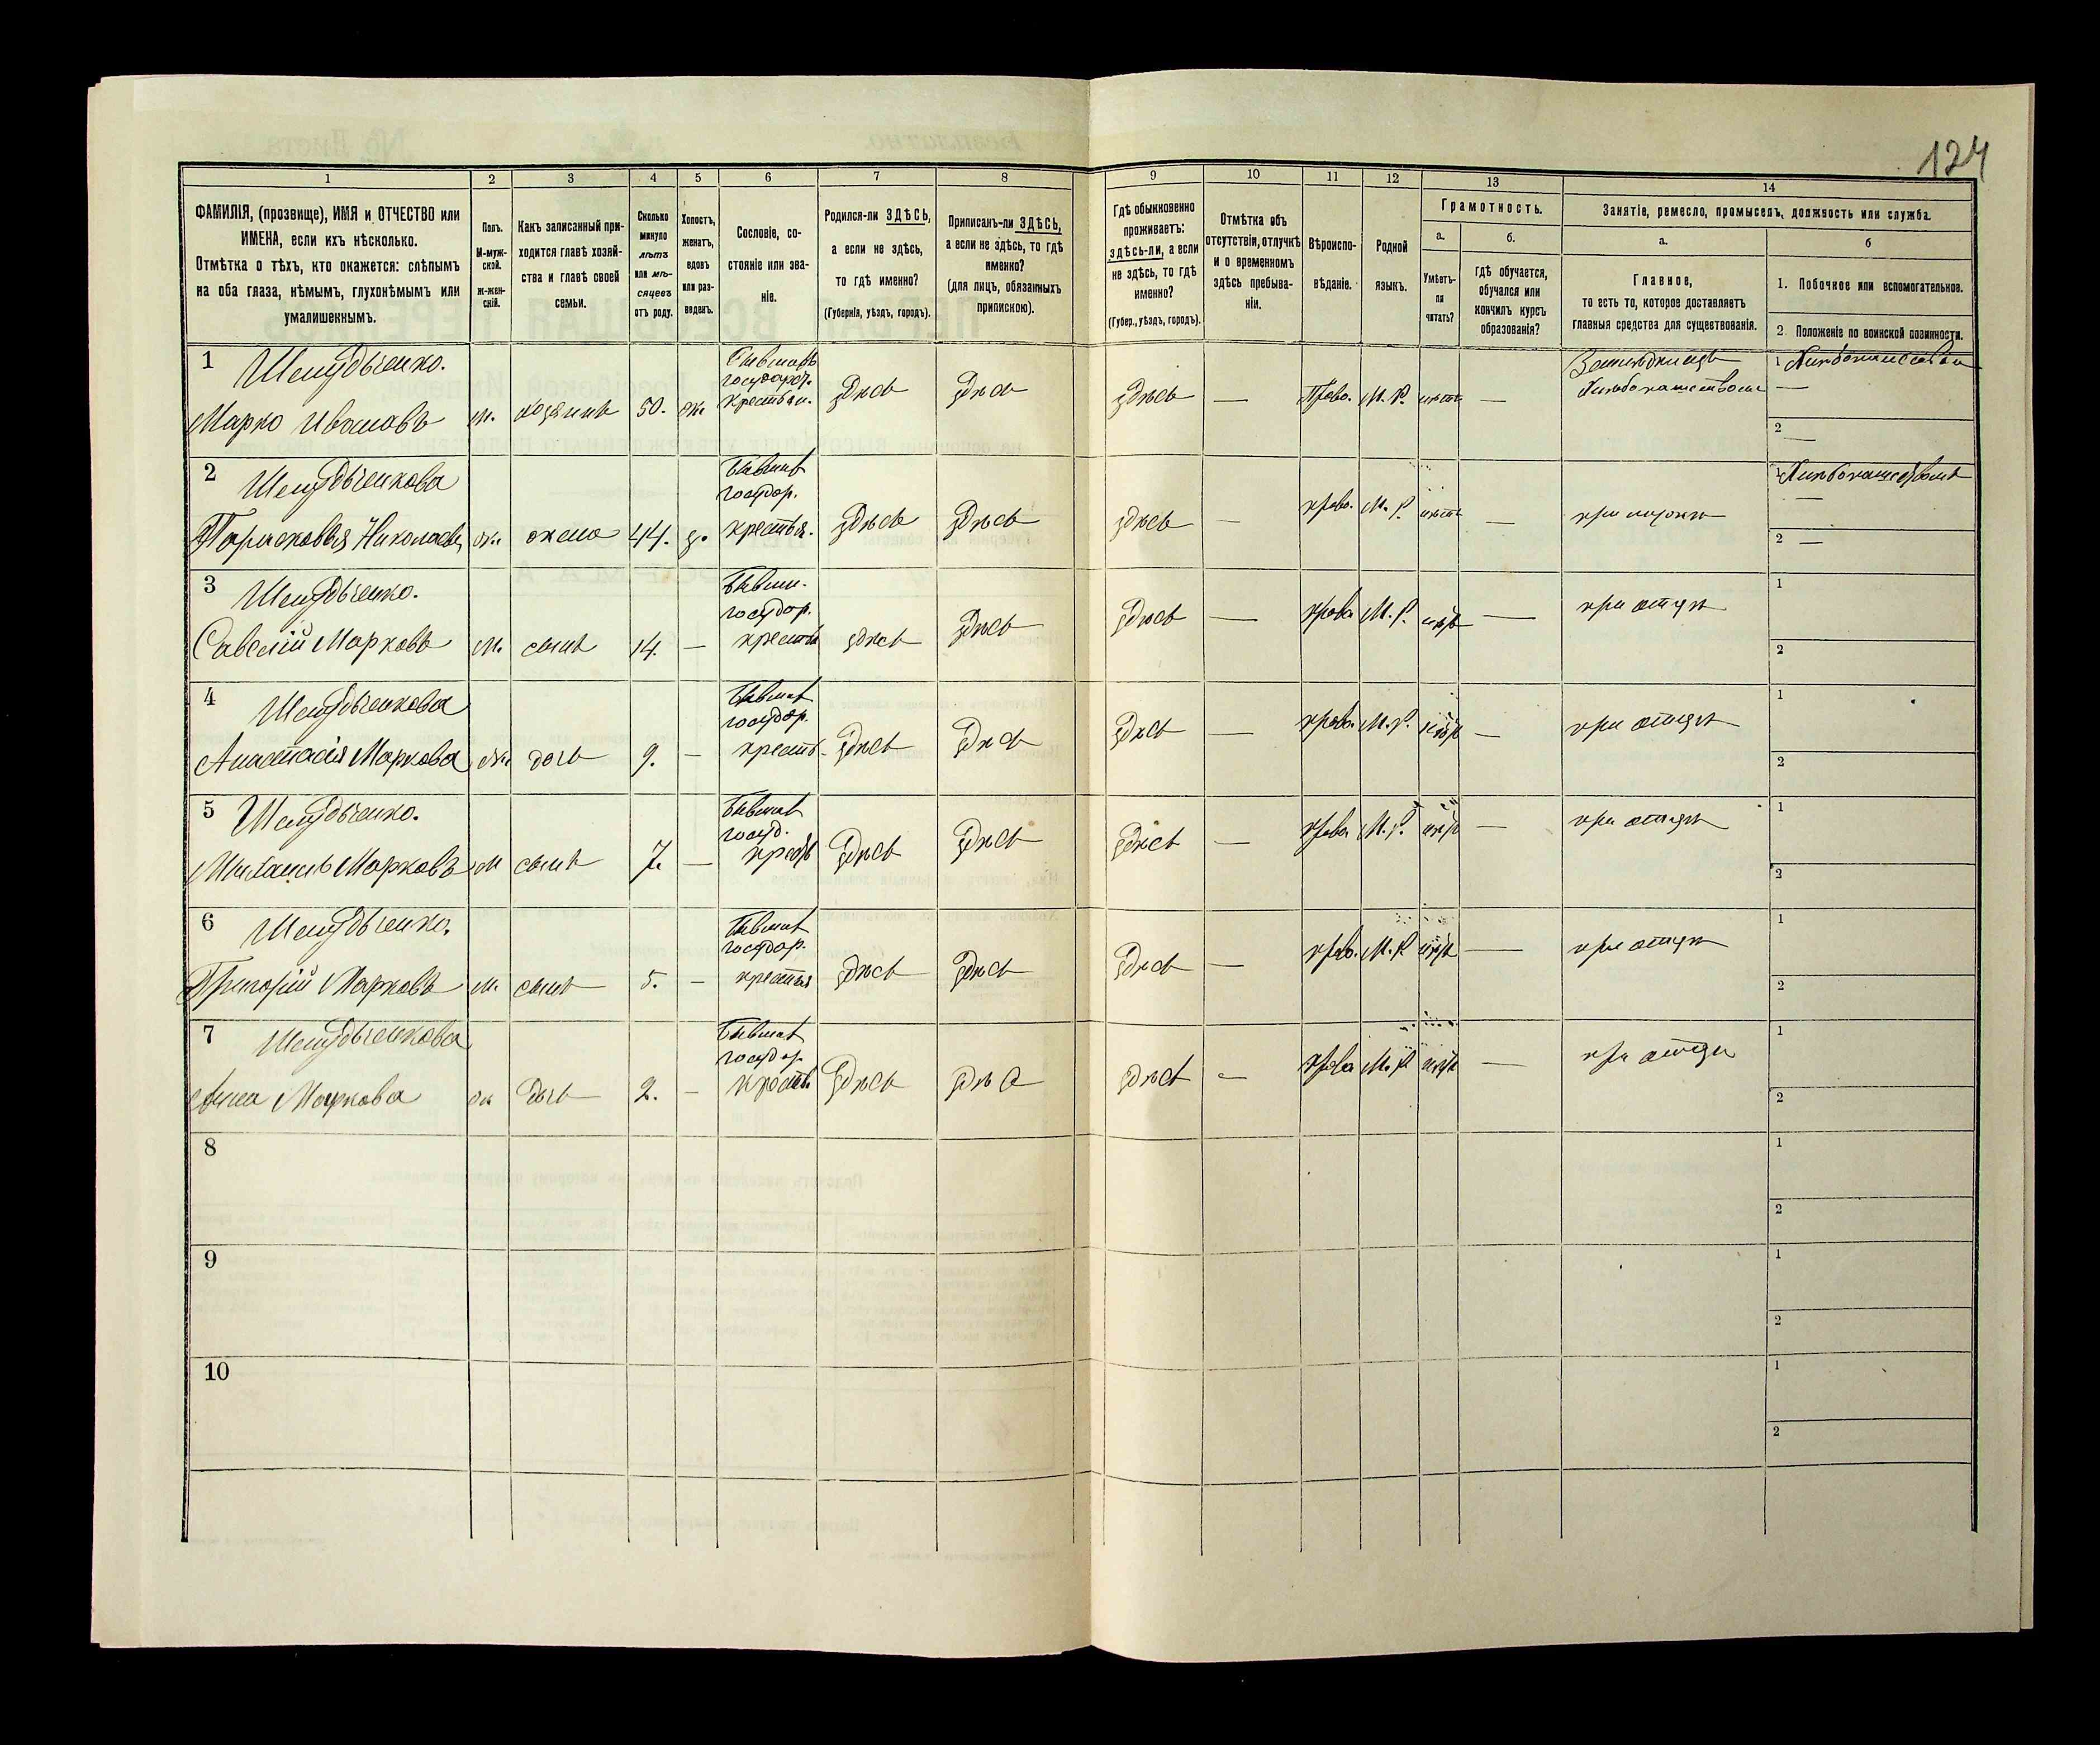 124
1 2 3 4 5 6 7 8 9 10 11 12 13 14
ФАМИЛІЯ, (прозвище), ИМЯ и ОТЧЕСТВО или
ИМЕНА, если ихъ нѣсколько.
Отмѣтка о тѣхъ, кто окажется: слѣпымъ
на оба глаза, нѣмымъ, глухонѣмымъ или
умалишеннымъ.
Полъ.
М-муж-
ской.
ж-жен-
скій.
Какъ записанный при-
ходится главѣ хозяй-
ства и главѣ своей
семьи.
Сколько
минуло
лѣтъ
или мѣ-
сяцевъ
отъ роду.
Холостъ,
женатъ,
вдовъ
или раз-
веденъ.
Сословіе, со-
стояніе или зва-
ніе.
Родился-ли ЗДѢСЬ,
а если не здѣсь,
то гдѣ именно?
(Губернія, уѣздъ, городъ).
Приписанъ-ли ЗДѢСЬ,
а если не здѣсь, то гдѣ
именно?
(для лицъ, обязанныхъ
припискою).
Гдѣ обыкновенно
проживаетъ:
здѣсь-ли, а если
не здѣсь, то гдѣ
именно?
(Губер., уѣздъ, городъ).
Отмѣтка объ
отсутствіи, отлучкѣ
и о временномъ
здѣсь пребыва-
ніи.
Вѣроиспо-
вѣданіе.
Родной
языкъ.
Грамотность.
а.
Умѣетъ-
ли
читать?
б.
гдѣ обучается,
обучался или
кончилъ курсъ
образованія?
Занятіе, ремесло, промыселъ, должность или служба.
а.
Главное,
то есть то, которое доставляетъ
главныя средства для существованія.
б
1. Побочное или вспомогательное.
2. Положеніе по воинской повинности.
1
Марко Ивановъ м. хозяинъ 50. ж. здѣсь здѣсь здѣсь — Право. М. Р. нѣтъ —
государ.
крестьян.
Хлѣбопашество
1 —
2 —
2
Парасковья Николаева ж. жена 44. з. здѣсь здѣсь здѣсь — право. М. Р. нѣтъ — при мужѣ
Бывшихъ
государ.
крестья.
1 —
2 —
3
Савелій Марковъ м. сынъ 14 — здѣсь здѣсь здѣсь — права М. Р. нѣтъ — при отцѣ
Бывши.
государ.
крестья
1
2
4
Анастасія Маркова ж. дочь 9. — здѣсь здѣсь здѣсь — право. М. Р. нѣтъ — при отцѣ
Бывших
государ.
крестья
1
2
5
Марковъ м сынъ 7. — здѣсь здѣсь здѣсь — права М. Р. нѣтъ — при отцѣ
Бывших
госуд.
1
2
6
Григорій Марковъ м. сынъ 5. — здѣсь здѣсь здѣсь — право. М. Р нѣтъ — при отцѣ
Бывших
государ.
крестья
1
2
7
Анна Маркова ж дочь 2. — здѣсь здѣсь здѣсь — права М. Р нѣтъ — при отцѣ
Бывших
государ
1
2
8
1
2
9
1
2
10
1
2